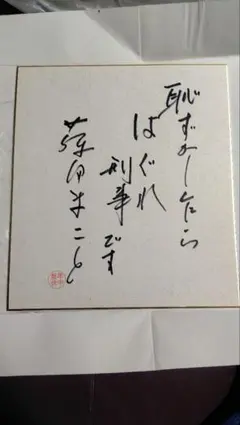 恥ずかしながら
はぐれ
刑事です
藤田まこと